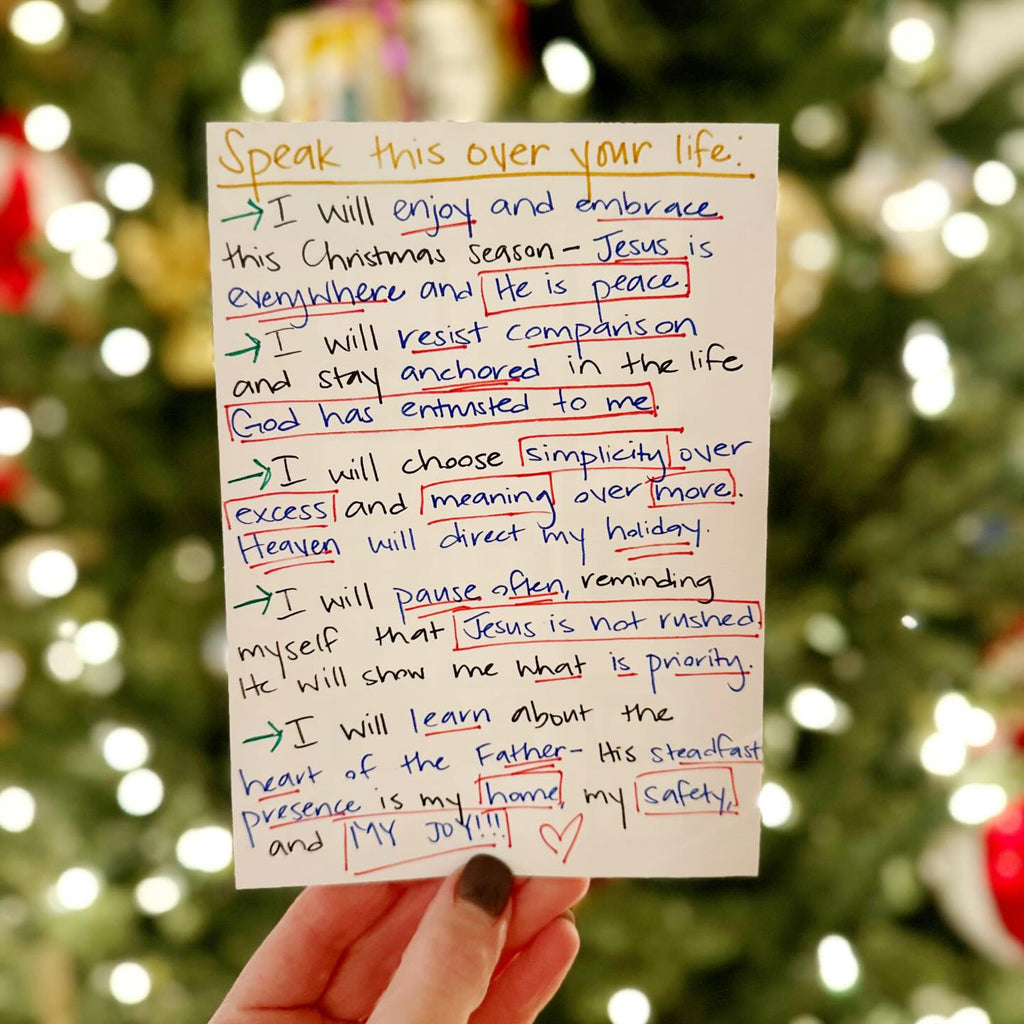 Speak this over your life:
→I will enjoy and embrace
this Christmas season - Jesus is
everywhere and He is peace.
→I will resist comparison
and stay anchored in the life
God has entrusted to me.
→I will choose simplicity over
excess and meaning over more.
Heaven will direct my holiday.
→I will pause often, reminding
myself that Jesus is not rushed.
He will show me what is priority.
→I will learn about the
heart of the Father - His steadfast
presence is my home, my safety,
and MY JOY!!! ♡